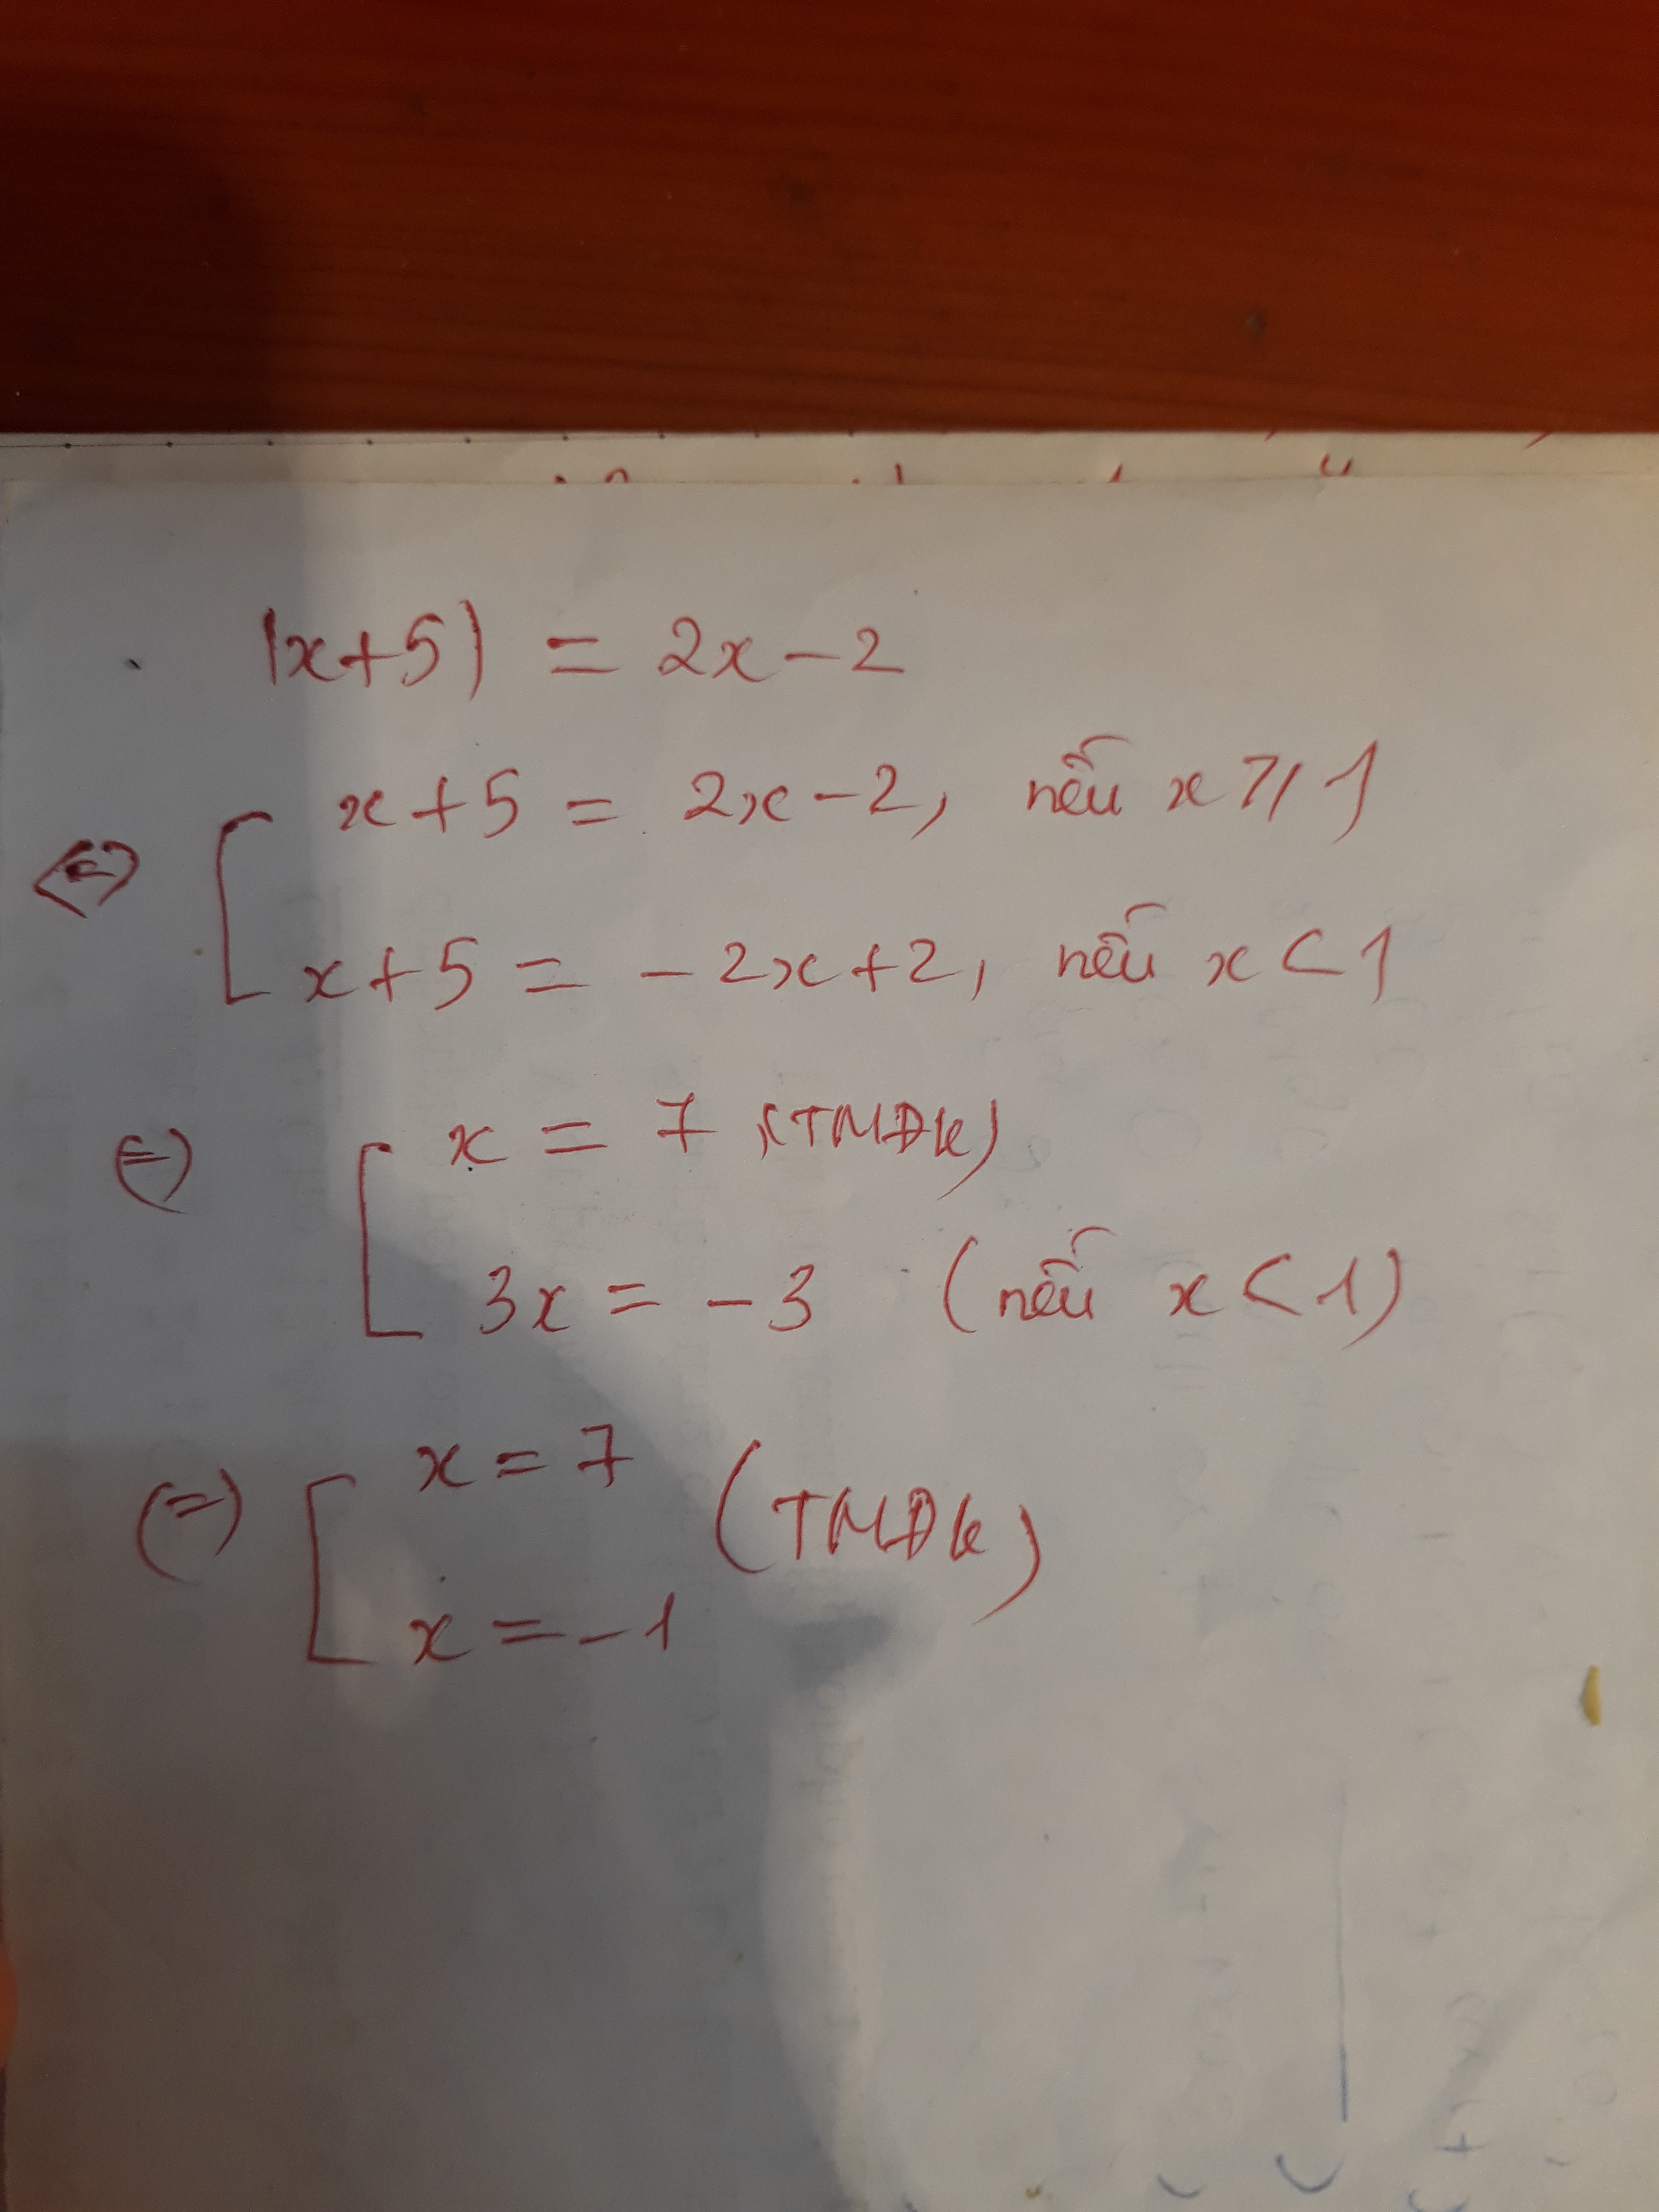 |x+5| = 2x-2
⇔ [ x+5 = 2x-2, nếu x ≥ 1
x+5 = -2x+2, nếu x < 1
⇔ [ x = 7 (TMĐK)
3x = -3 (nếu x < 1)
⇔ [ x = 7
(TMĐK)
x = -1